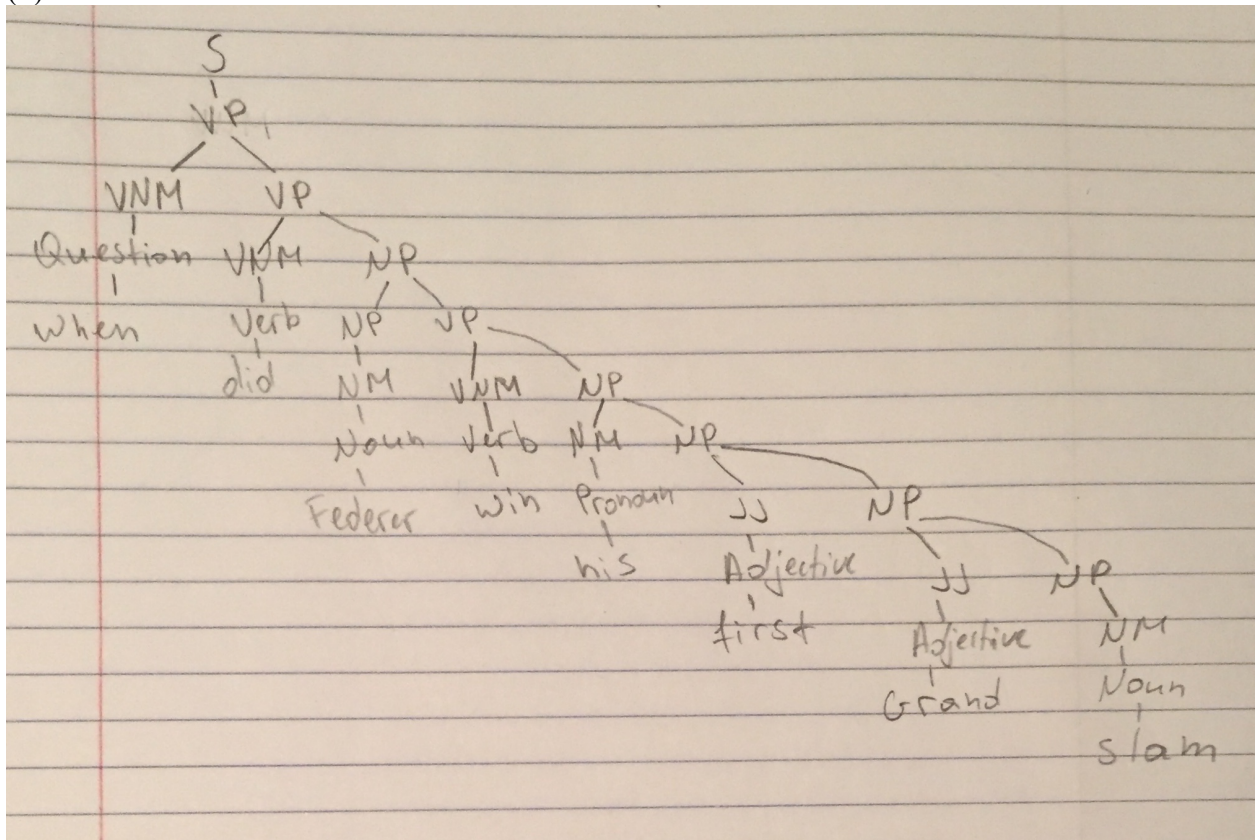 S
VP
VNM VP
Question VNM NP
When Verb NP VP
did NM VNM NP
Noun Verb NM NP
Federer win Pronoun JJ NP
his Adjective JJ NP
first Adjective NM
Grand Noun
slam